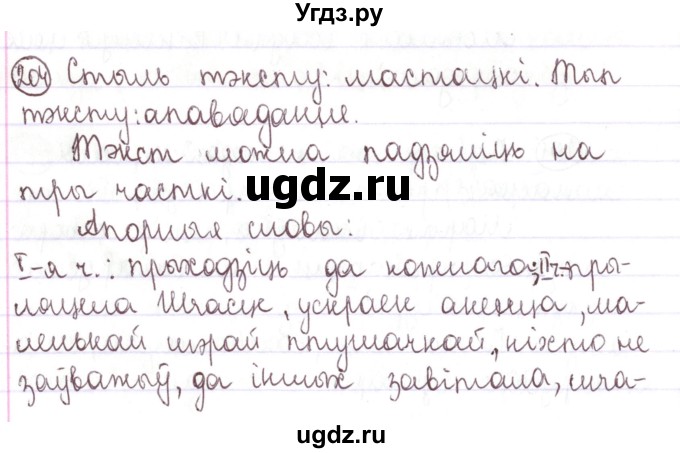 Угдз.ру
204 Стыль тэксту: мастацкі. Тып
тэксту: апавяданне.
Тэкст можна падзяліць на
тры часткі.
ugdz.ru
Апорныя словы:
I-я ч.: прыходзіць да кожнага; II ч.- пры-
ляцела Шчасце, ускраек аконца, ма-
ленькай шэрай птушачкай, ніхто не
заўважыў, да іншых завітала, шча-
ugdz.ru